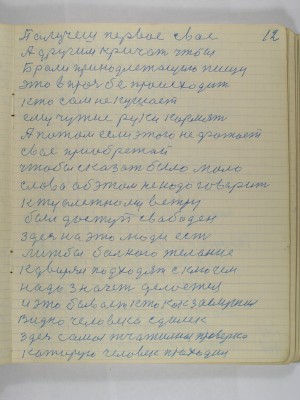 12
Получеш первое свае
А другим кричат чтобы
Брали принадлежащую пищу
это в проч бе происходит
кто сам не кушает
ему чужие руки кормят
А патом если этого не
свае приобретай
чтобы сказат было мало
слова об этом не надо говорит
к туалетному ветру
был доступ свабоден
здес на это люди ест
Лишбы был кого желание
К двирям подходят с ключем
надо значет делоетца
И это бывает кто как
Видно человека сдилек
здес самая тчателная проверка
каторую человек праходил